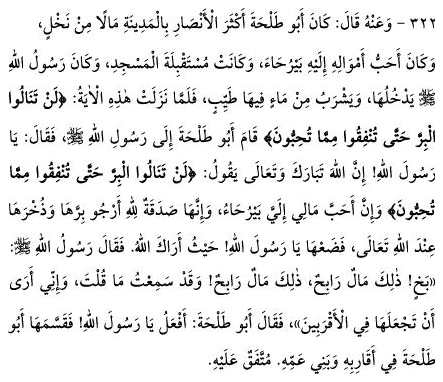 ٣٢٢ - وَعَنْهُ قَالَ: كَانَ أَبُو طَلْحَةَ أَكْثَرَ الْأَنْصَارِ بِالْمَدِينَةِ مَالًا مِنْ نَخْلٍ،
وَكَانَ أَحَبُّ أَمْوَالِهِ إِلَيْهِ بَيْرُحَاءَ، وَكَانَتْ مُسْتَقْبِلَةَ الْمَسْجِدِ، وَكَانَ رَسُولُ اللهِ
ﷺ يَدْخُلُهَا، وَيَشْرَبُ مِنْ مَاءٍ فِيهَا طَيِّبٍ، فَلَمَّا نَزَلَتْ هٰذِهِ الْآيَةُ: ﴿لَنْ تَنَالُوا
الْبِرَّ حَتَّى تُنْفِقُوا مِمَّا تُحِبُّونَ﴾ قَامَ أَبُو طَلْحَةَ إِلَى رَسُولِ اللهِ ﷺ، فَقَالَ: يَا
رَسُولَ اللهِ! إِنَّ اللهَ تَبَارَكَ وَتَعَالَى يَقُولُ: ﴿لَنْ تَنَالُوا الْبِرَّ حَتَّى تُنْفِقُوا مِمَّا
تُحِبُّونَ﴾ وَإِنَّ أَحَبَّ مَالِي إِلَيَّ بَيْرُحَاءُ، وَإِنَّهَا صَدَقَةٌ لِلهِ أَرْجُو بِرَّهَا وَذُخْرَهَا
عِنْدَ اللهِ تَعَالَى، فَضَعْهَا يَا رَسُولَ اللهِ! حَيْثُ أَرَاكَ اللهُ. فَقَالَ رَسُولُ اللهِ ﷺ:
«بَخٍ! ذٰلِكَ مَالٌ رَابِحٌ، ذٰلِكَ مَالٌ رَابِحٌ! وَقَدْ سَمِعْتُ مَا قُلْتَ، وَإِنِّي أَرَى
أَنْ تَجْعَلَهَا فِي الْأَقْرَبِينَ»، فَقَالَ أَبُو طَلْحَةَ: أَفْعَلُ يَا رَسُولَ اللهِ! فَقَسَّمَهَا أَبُو
طَلْحَةَ فِي أَقَارِبِهِ وَبَنِي عَمِّهِ. مُتَّفَقٌ عَلَيْهِ.